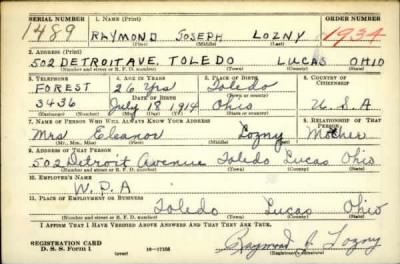 SERIAL NUMBER 1. NAME (Print) ORDER NUMBER
1489 RAYMOND JOSEPH LOZNY 1934
(First) (Middle) (Last)
2. ADDRESS (Print)
502 DETROIT AVE, TOLEDO LUCAS OHIO
(Number and street or R. F. D. number) (Town) (County) (State)
3. TELEPHONE 4. AGE IN YEARS 5. PLACE OF BIRTH 6. COUNTRY OF CITIZENSHIP
FOREST 26 Yrs Toledo
DATE OF BIRTH (Town or county)
3436 July 18 1914 Ohio U.S.A
(Exchange) (Number) (Mo.) (Day) (Yr.) (State or country)
7. NAME OF PERSON WHO WILL ALWAYS KNOW YOUR ADDRESS 8. RELATIONSHIP OF THAT PERSON
Mrs Eleanor Lozny Mother
(Mr., Mrs., Miss) (First) (Middle) (Last)
9. ADDRESS OF THAT PERSON
502 Detroit Avenue Toledo Lucas Ohio
(Number and street or R. F. D. number) (Town) (County) (State)
10. EMPLOYER'S NAME
W.P.A
11. PLACE OF EMPLOYMENT OR BUSINESS
Toledo Lucas Ohio
(Number and street or R. F. D. number) (Town) (County) (State)
I AFFIRM THAT I HAVE VERIFIED ABOVE ANSWERS AND THAT THEY ARE TRUE.
REGISTRATION CARD
D. S. S. Form 1 (over) 16-17105 Raymond J. Lozny